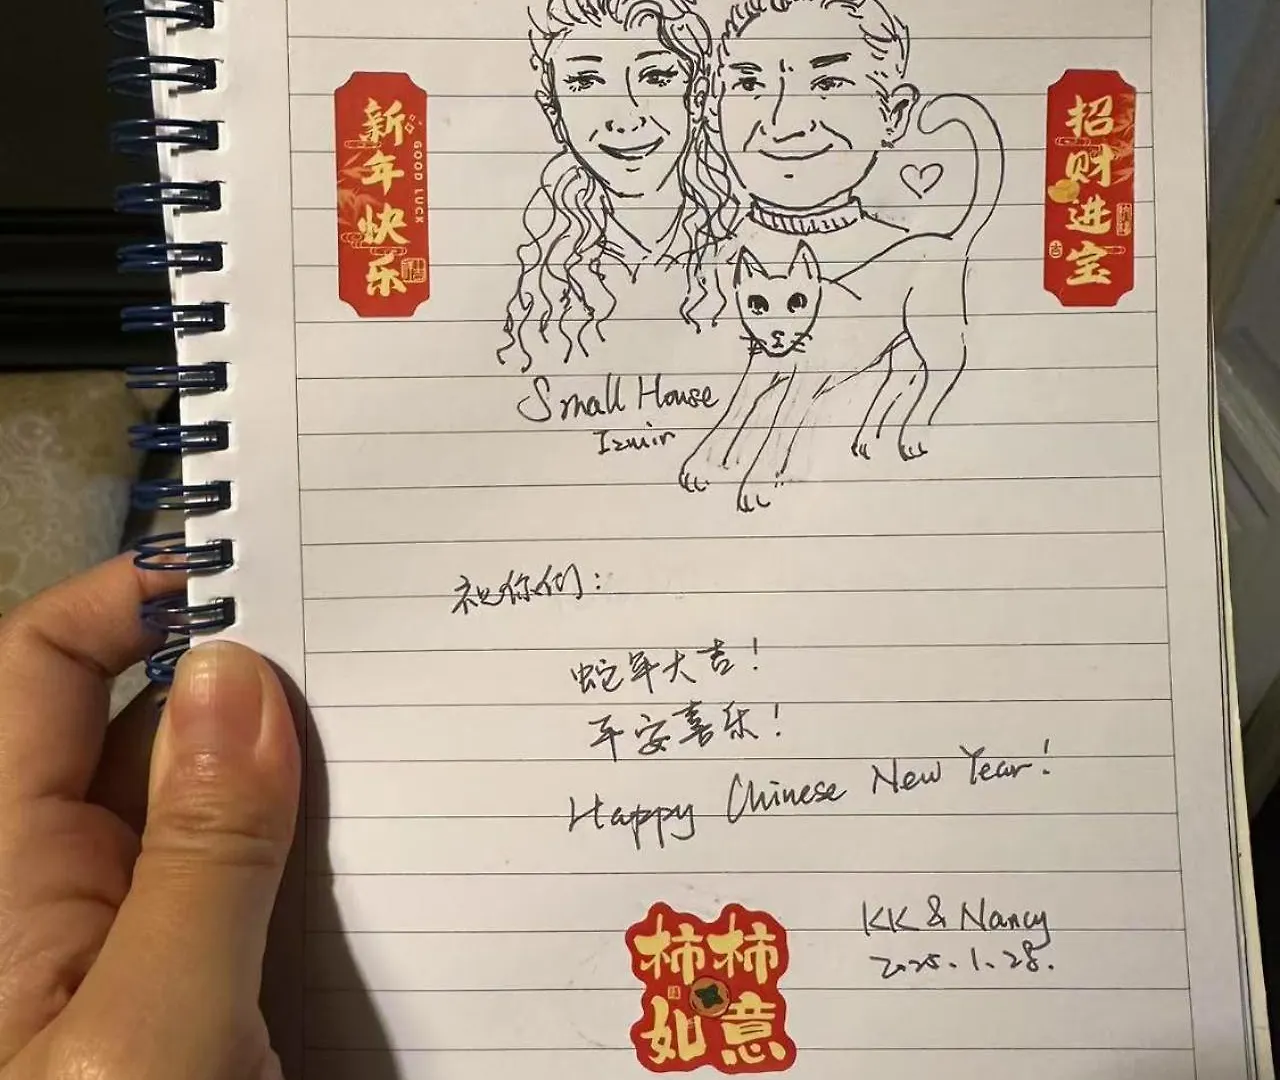 新年快乐
GOOD LUCK
招财进宝
Small House
Izmir
祝你们：
蛇年大吉！
平安喜乐！
Happy Chinese New Year!
KK & Nancy
2025.1.28.
柿柿
如意